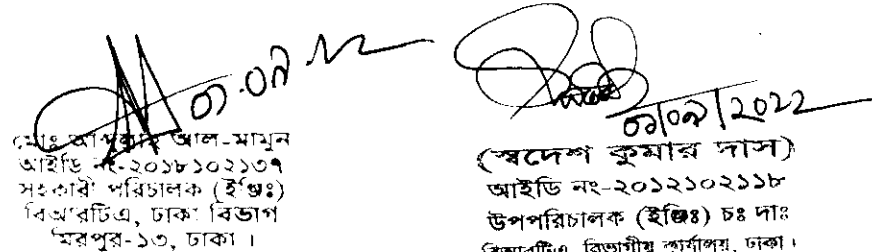 ০১/০৯/২০২২
মোঃ আল-মামুন
আইডি নং-২০১৮১০২১৩৭
সহকারী পরিচালক (ইঞ্জিঃ)
বিআরটিএ, ঢাকা বিভাগ
মিরপুর-১৩, ঢাকা ।
(স্বদেশ কুমার দাস)
আইডি নং-২০১২১০২১১৮
উপপরিচালক (ইঞ্জিঃ) চঃ দাঃ
বিআরটিএ, বিভাগীয় কার্যালয়, ঢাকা।